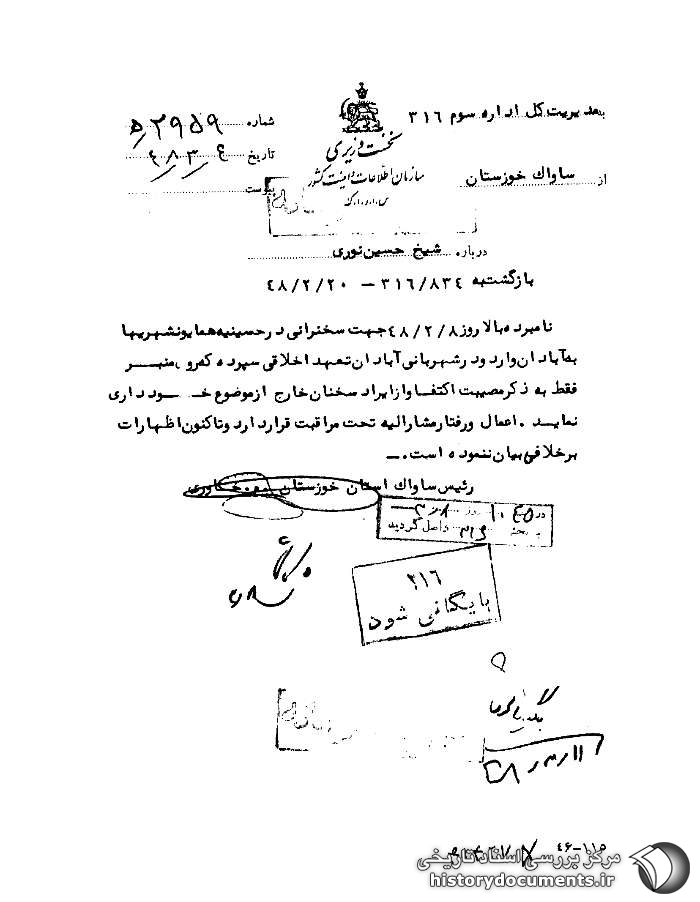 بمدیریت کل اداره سوم ۳۱۶
نخست وزیری
سازمان اطلاعات و امنیت کشور
س.ا.و.ا.ک
شماره ۲۹۵۹/ ه
تاریخ ۴۸/۳/۴
پیوست
از ساواک خوزستان
درباره شیخ حسین نوری
بازگشت به ۳۱۶/۸۳۴ – ۴۸/۲/۲۰
نامبرده بالا روز ۴۸/۲/۸ جهت سخنرانی در حسینیه همایونشهریها
به آبادان وارد و در شهربانی آبادان تعهد اخلاقی سپرده که روی منبر
فقط به ذکر مصیبت اکتفا و از ایراد سخنان خارج از موضوع خودداری
نماید . اعمال و رفتار مشارالیه تحت مراقبت قرار دارد و تاکنون اظهارات
برخلافی بیان ننموده است .–
رئیس ساواک استان خوزستان
در روز
واصل گردید
۳۱۶
بایگانی شود
۴۶-۱۱۵
مرکز بررسی اسناد تاریخی
historydocuments.ir